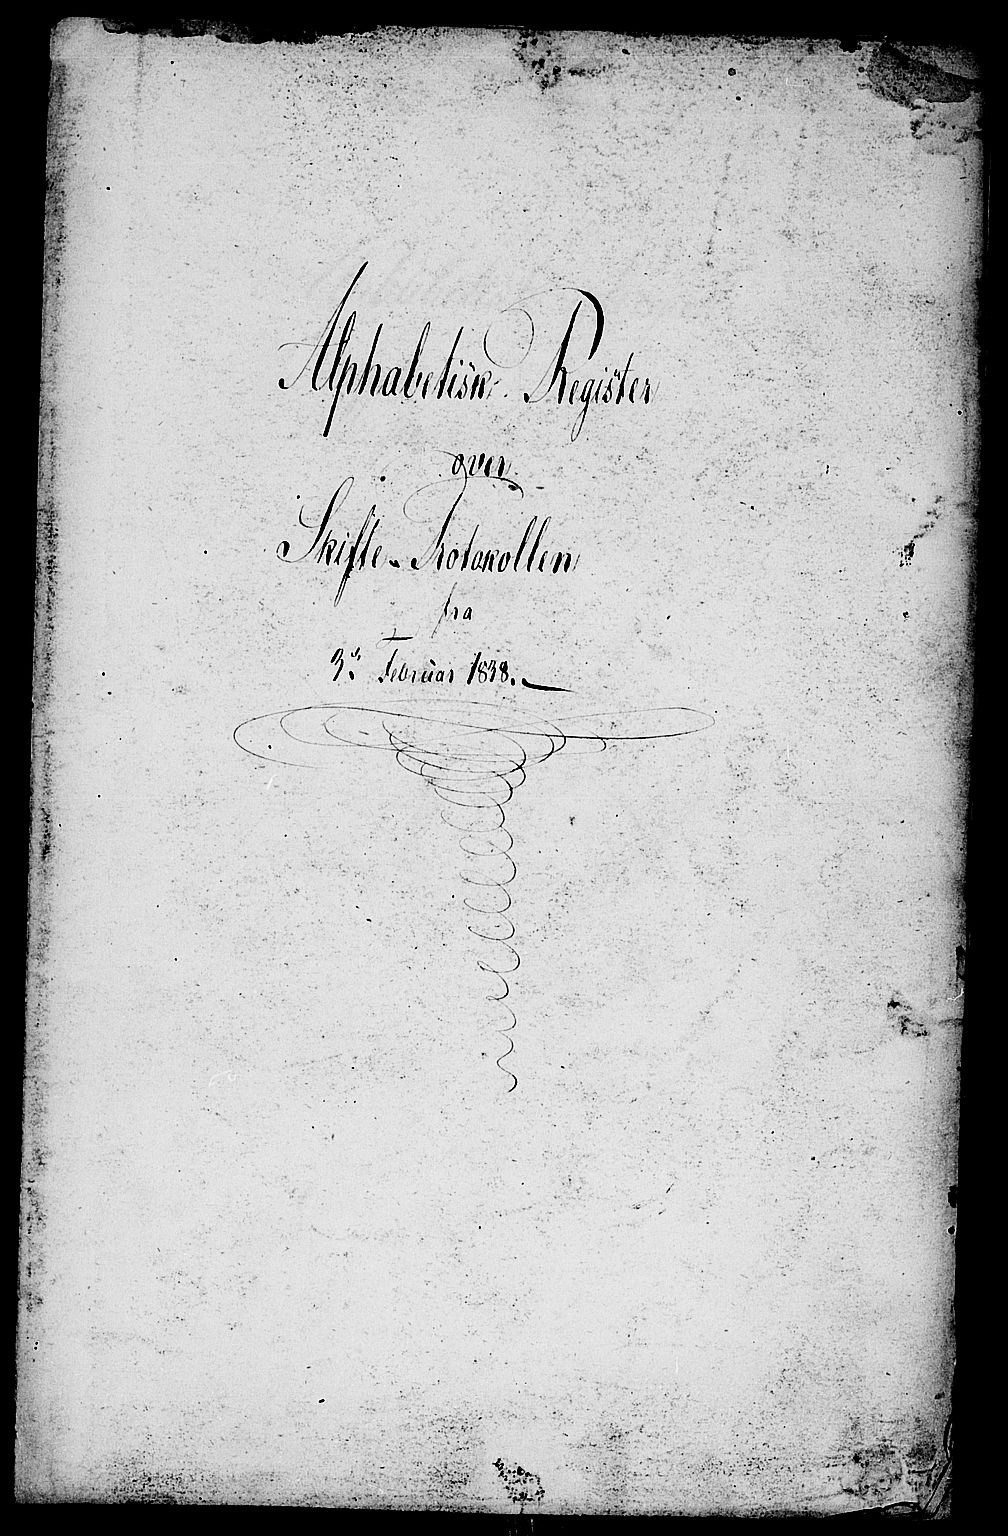 Alphabetisk Register
over
Skifte-Protokollen
fra
3die Februar 1838.